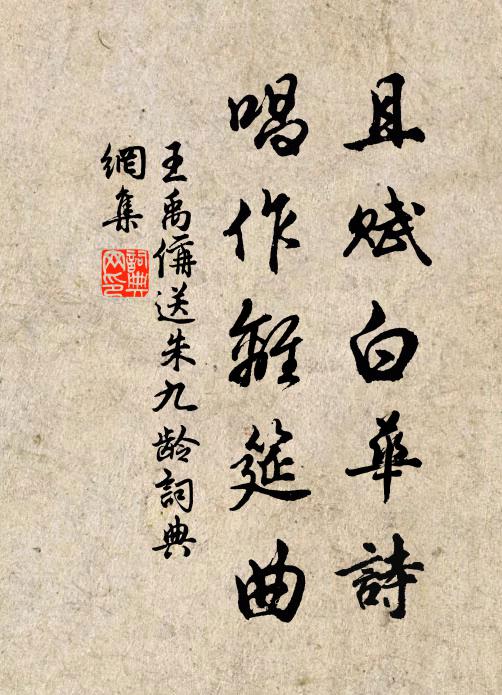 且賦白華詩
唱作離筵曲
王禹偁送朱九龄詞典
網集
詞典
网印